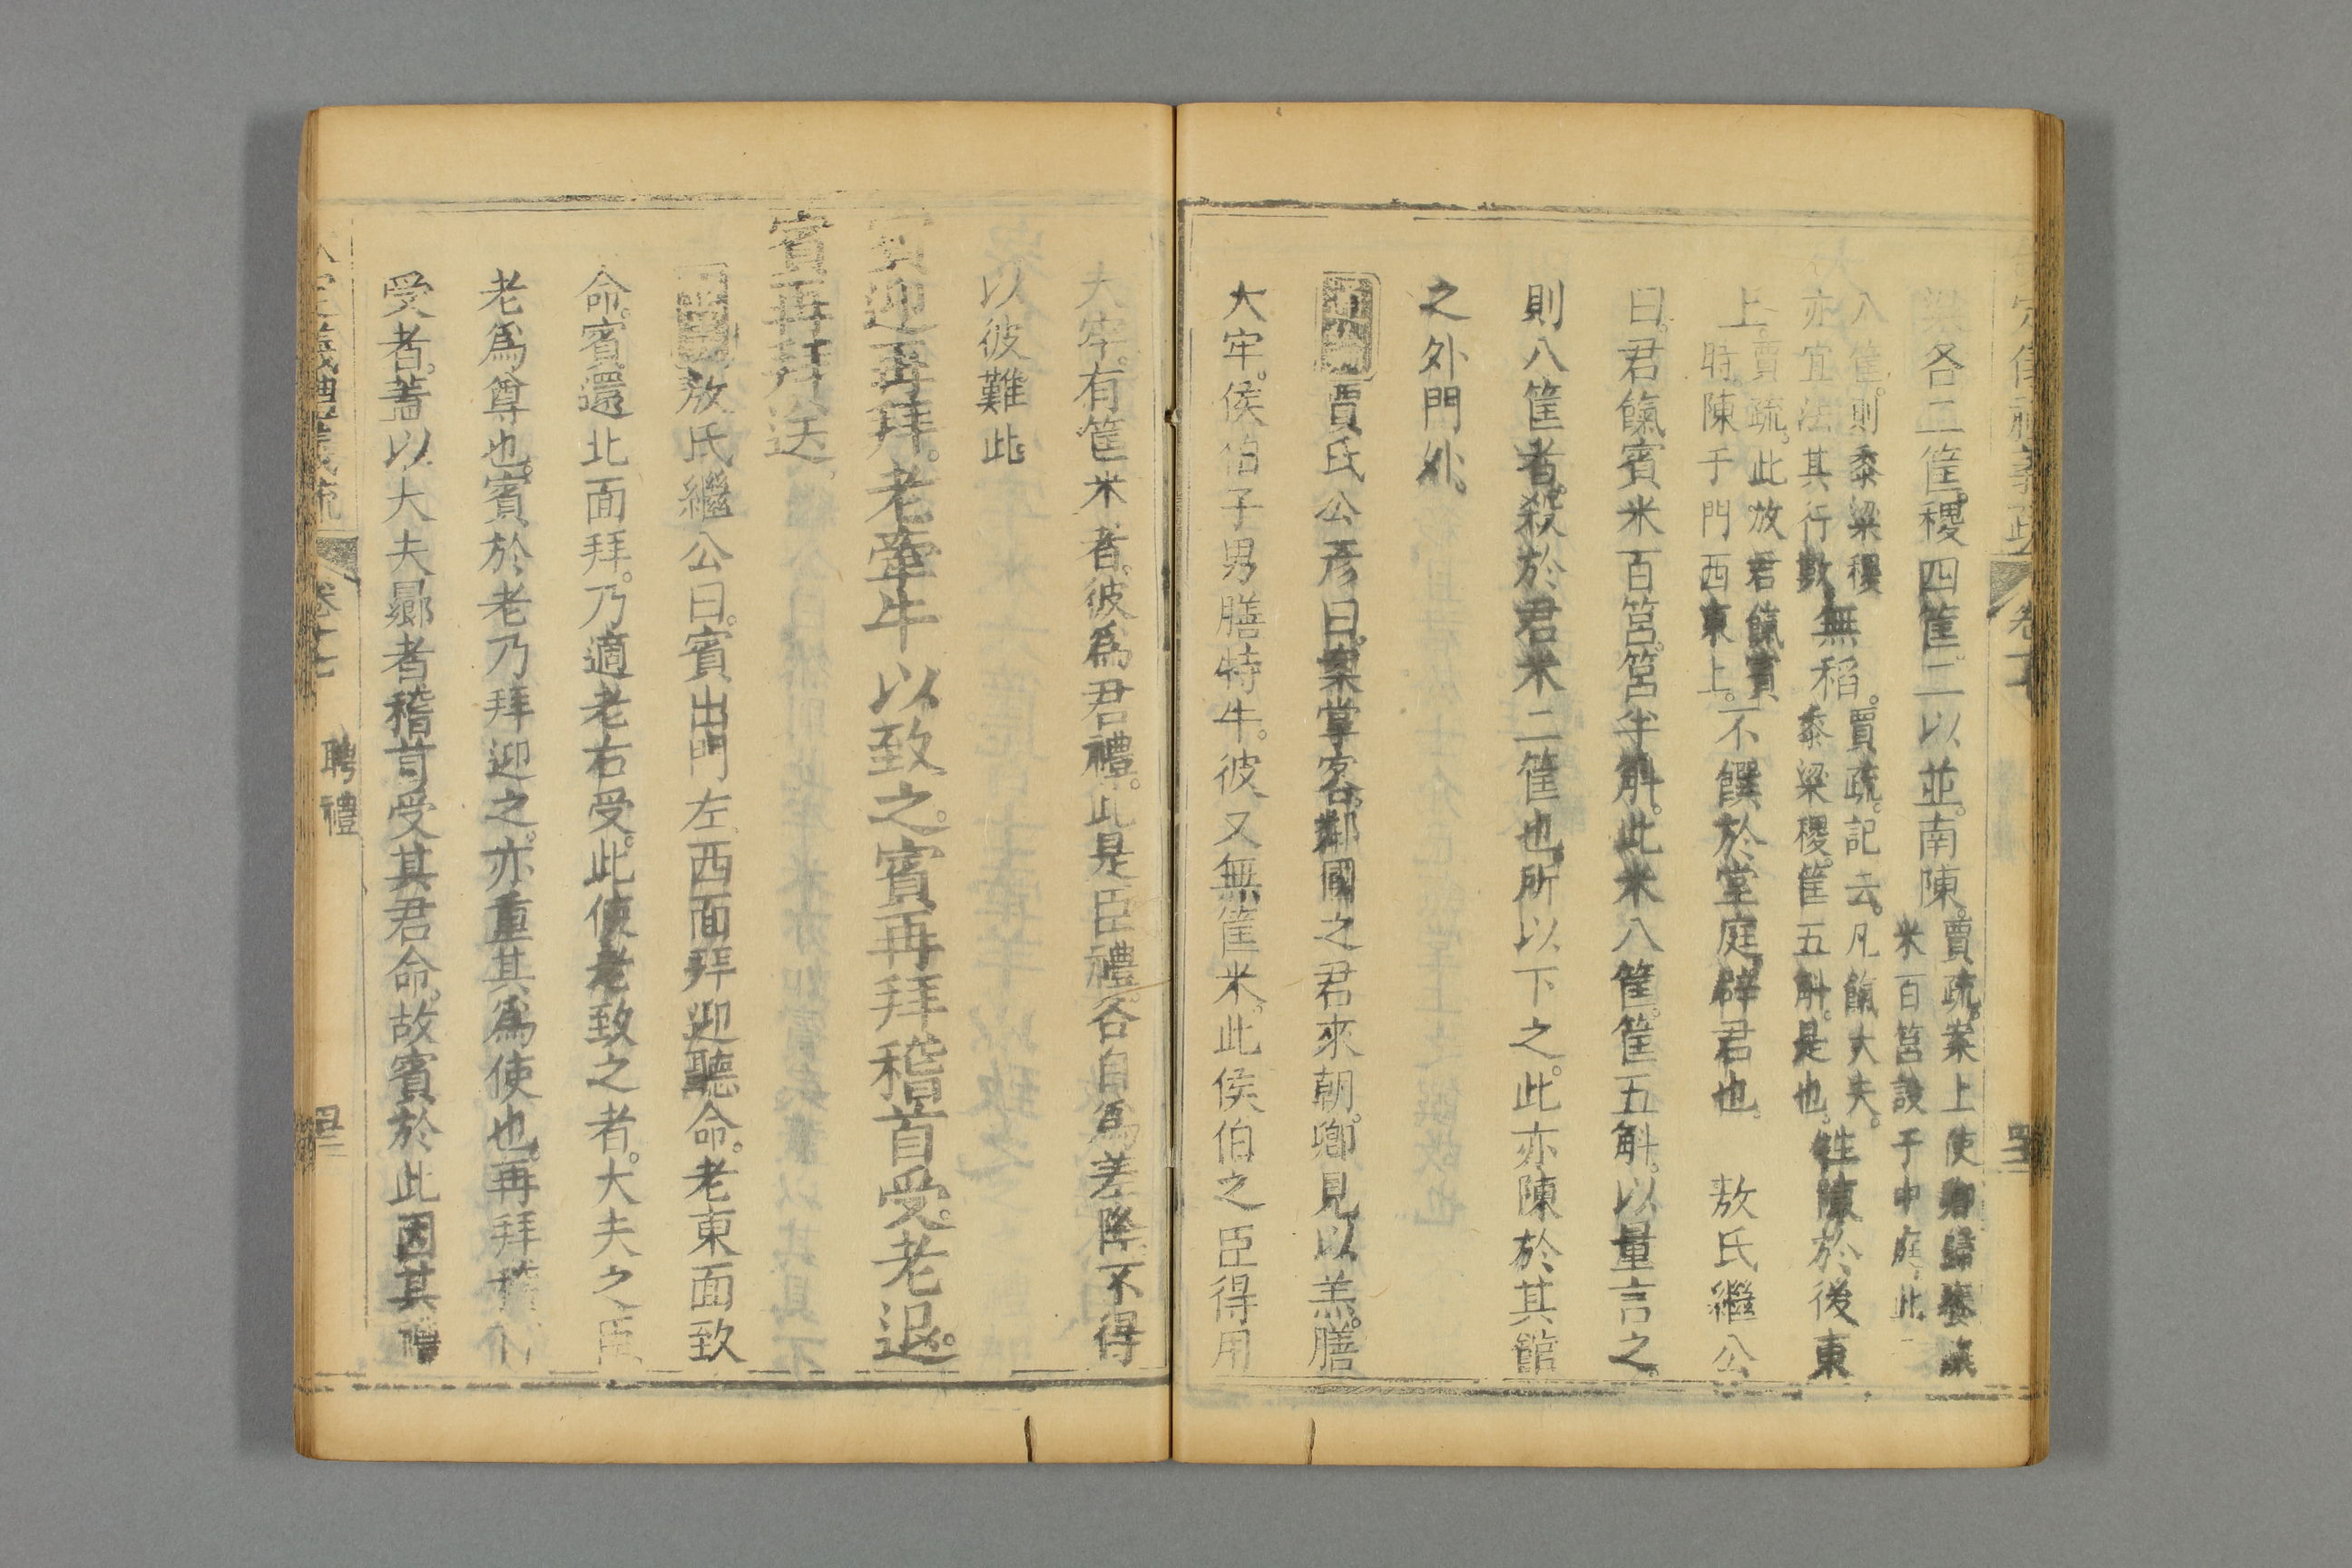 梁各二筐。稷四筐。二以並。南陳。賈疏。案上使卿歸饔餼
米百筥設于中庭。此
八筐。則黍粱稷無稻。賈疏。記云。凡餼大夫。
亦宜法其行數無稻。黍粱稷。筐五斛。是也。牲陳於後東
上。賈疏。此放君餼賓
時陳于門西東上。不饌於堂庭。辟君也。 敖氏繼公
曰。君餼賓米百筥。筥半斛。此米八筐。筐五斛。以量言之。
則八筐者。殺於君米二筐也。所以下之。此亦陳於其館
之外門外。
賈氏公彥曰。案掌客。鄰國之君來朝。卿見以羔。膳
大牢。侯伯子男膳特牛。彼又無筐米。此侯伯之臣得用
大牢。有筐米者。彼爲君禮。此是臣禮。各自爲差降。不得
以彼難此。
賓迎再拜。老牽牛以致之。賓再拜稽首受。老退。
賓再拜送。
敖氏繼公曰。賓出門左。西面拜迎聽命。老東面致
命。賓還北面拜。乃適老右受。此使老致之者。大夫之臣
老爲尊也。賓於老乃拜迎之。亦重其爲使也。再拜稽
受者。蓋以大夫曏者稽首受其君命。故賓於此因其禮
卷十七
聘禮